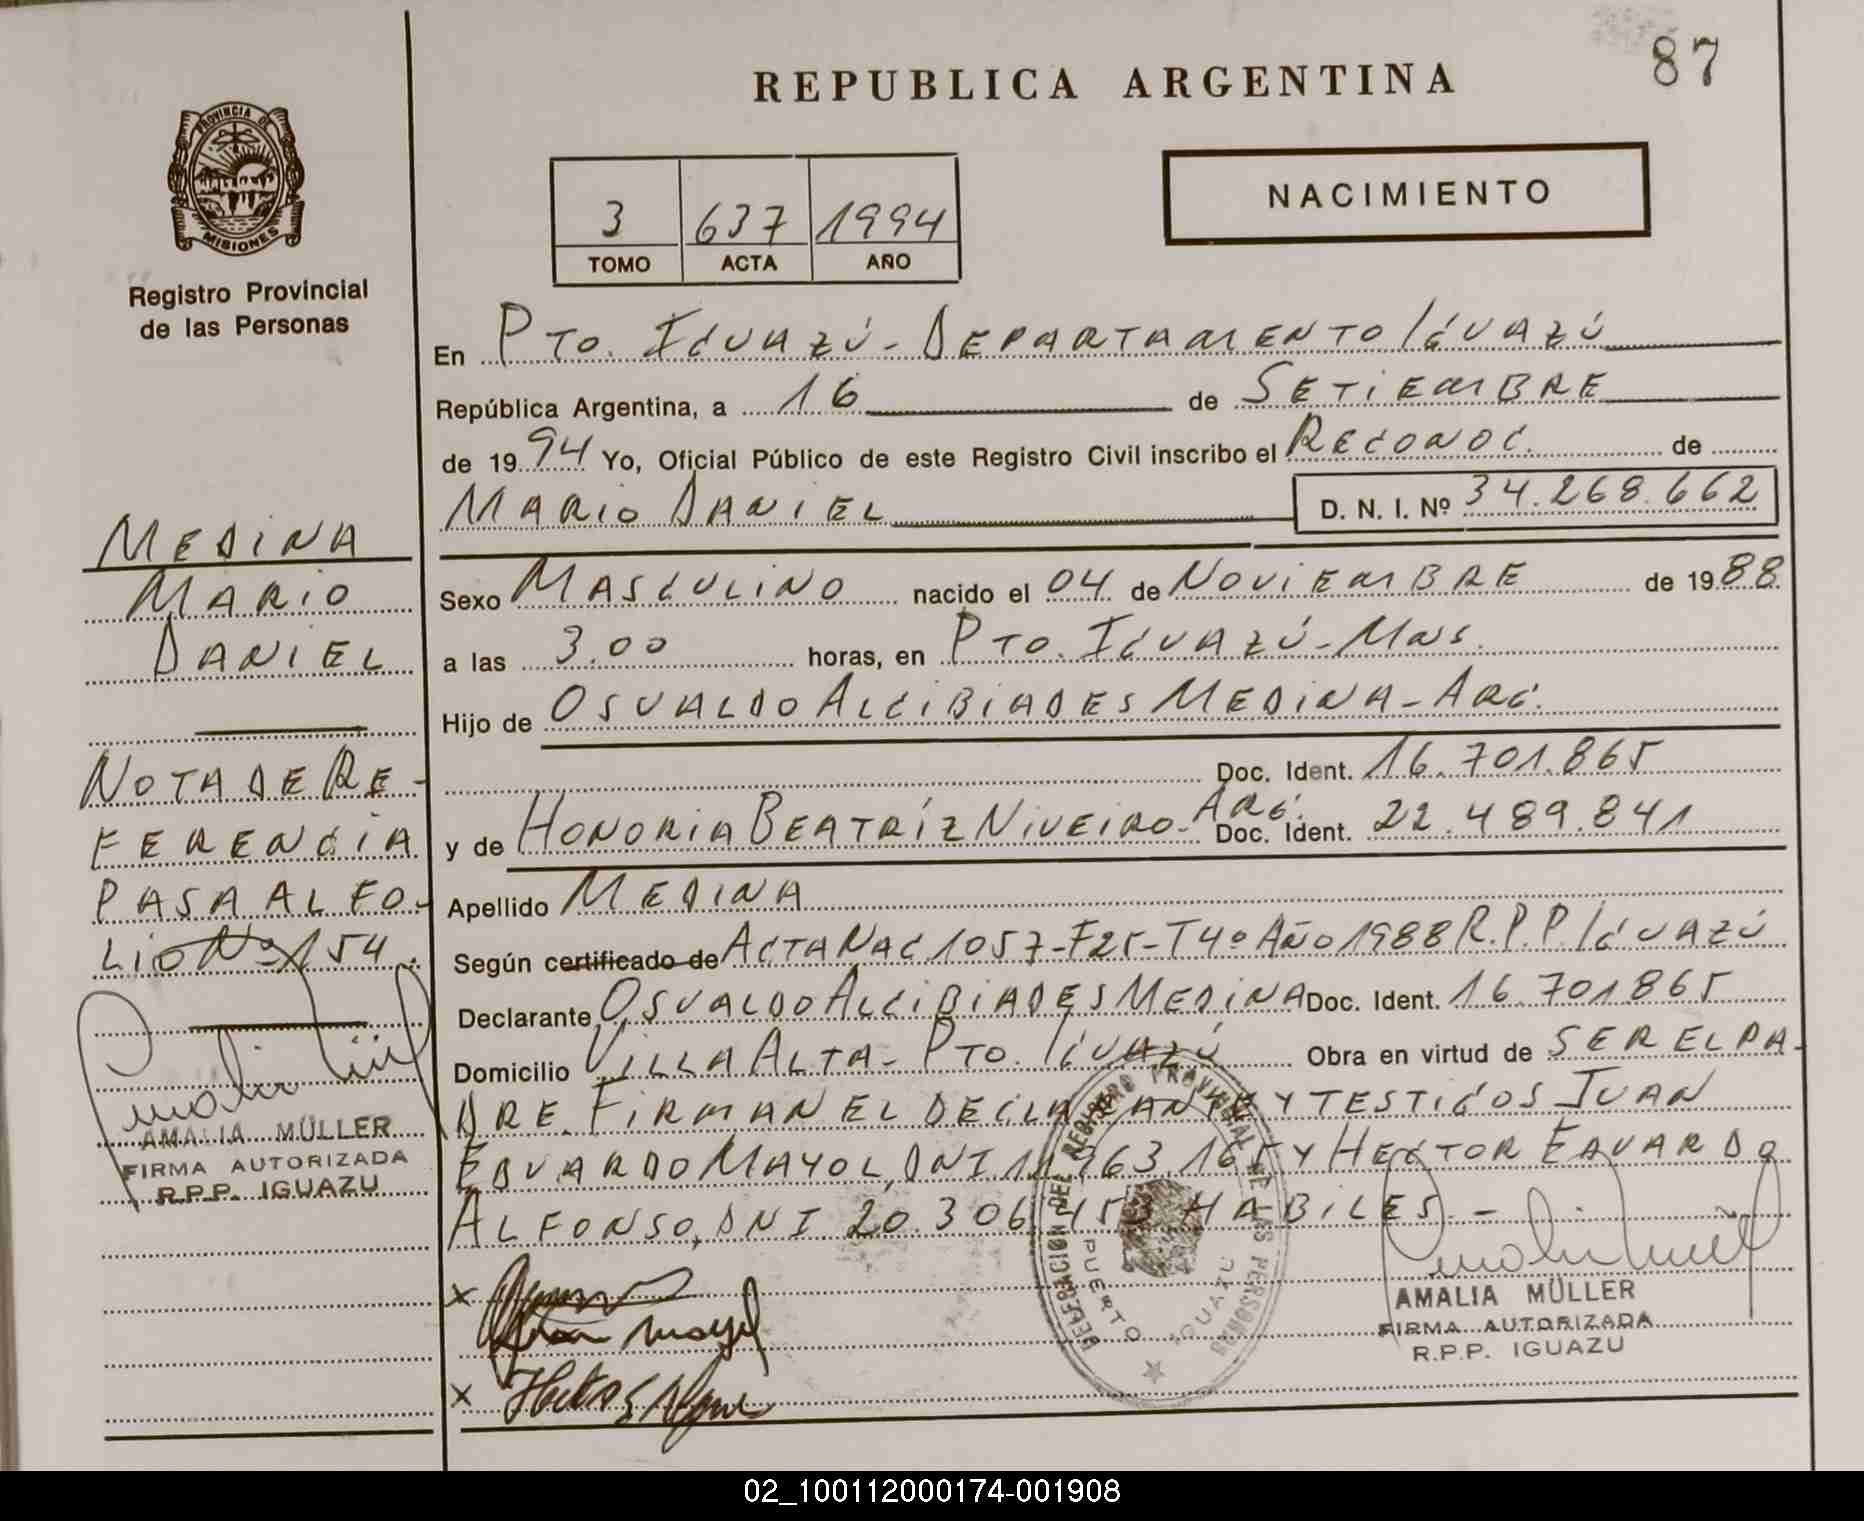 87
REPUBLICA ARGENTINA
PROVINCIA DE
MISIONES
Registro Provincial
de las Personas
NACIMIENTO
3 637 1994
TOMO ACTA AÑO
En PTO. IGUAZÚ - DEPARTAMENTO IGUAZÚ
República Argentina, a 16 de SETIEMBRE
de 1994 Yo, Oficial Público de este Registro Civil inscribo el RECONOC. de
MARIO DANIEL D. N. I. Nº 34.268.662
Sexo MASCULINO nacido el 04 de NOVIEMBRE de 1988
a las 3.00 horas, en PTO. IGUAZÚ - Mns.
Hijo de OSVALDO ALCIBIADES MEDINA - ARG.
Doc. Ident. 16.701.865
y de HONORIA BEATRÍZ NIVEIRO - ARG. Doc. Ident. 22.489.841
Apellido MEDINA
Según certificado de ACTA NAC 1057 - F25 - T4º AÑO 1988 R.P.P. IGUAZÚ
Declarante OSVALDO ALCIBIADES MEDINA Doc. Ident. 16.701865
Domicilio VILLA ALTA - PTO. IGUAZÚ Obra en virtud de SER EL PA-
DRE. FIRMAN EL DECLARANTE Y TESTIGOS JUAN
EDUARDO MAYOL, DNI Y HECTOR EDUARDO
ALFONSO, DNI 20.306 HABILES. -
MEDINA
MARIO
DANIEL
NOTA DE RE-
FERENCIA
PASA AL FO-
LIO Nº 154.
AMALIA MÜLLER
FIRMA AUTORIZADA
R.P.P. IGUAZU
DELEGACION DEL REGISTRO PROVINCIAL DE LAS PERSONAS
PUERTO IGUAZU
AMALIA MÜLLER
FIRMA AUTORIZADA
R.P.P. IGUAZU
x
x
02_100112000174-001908